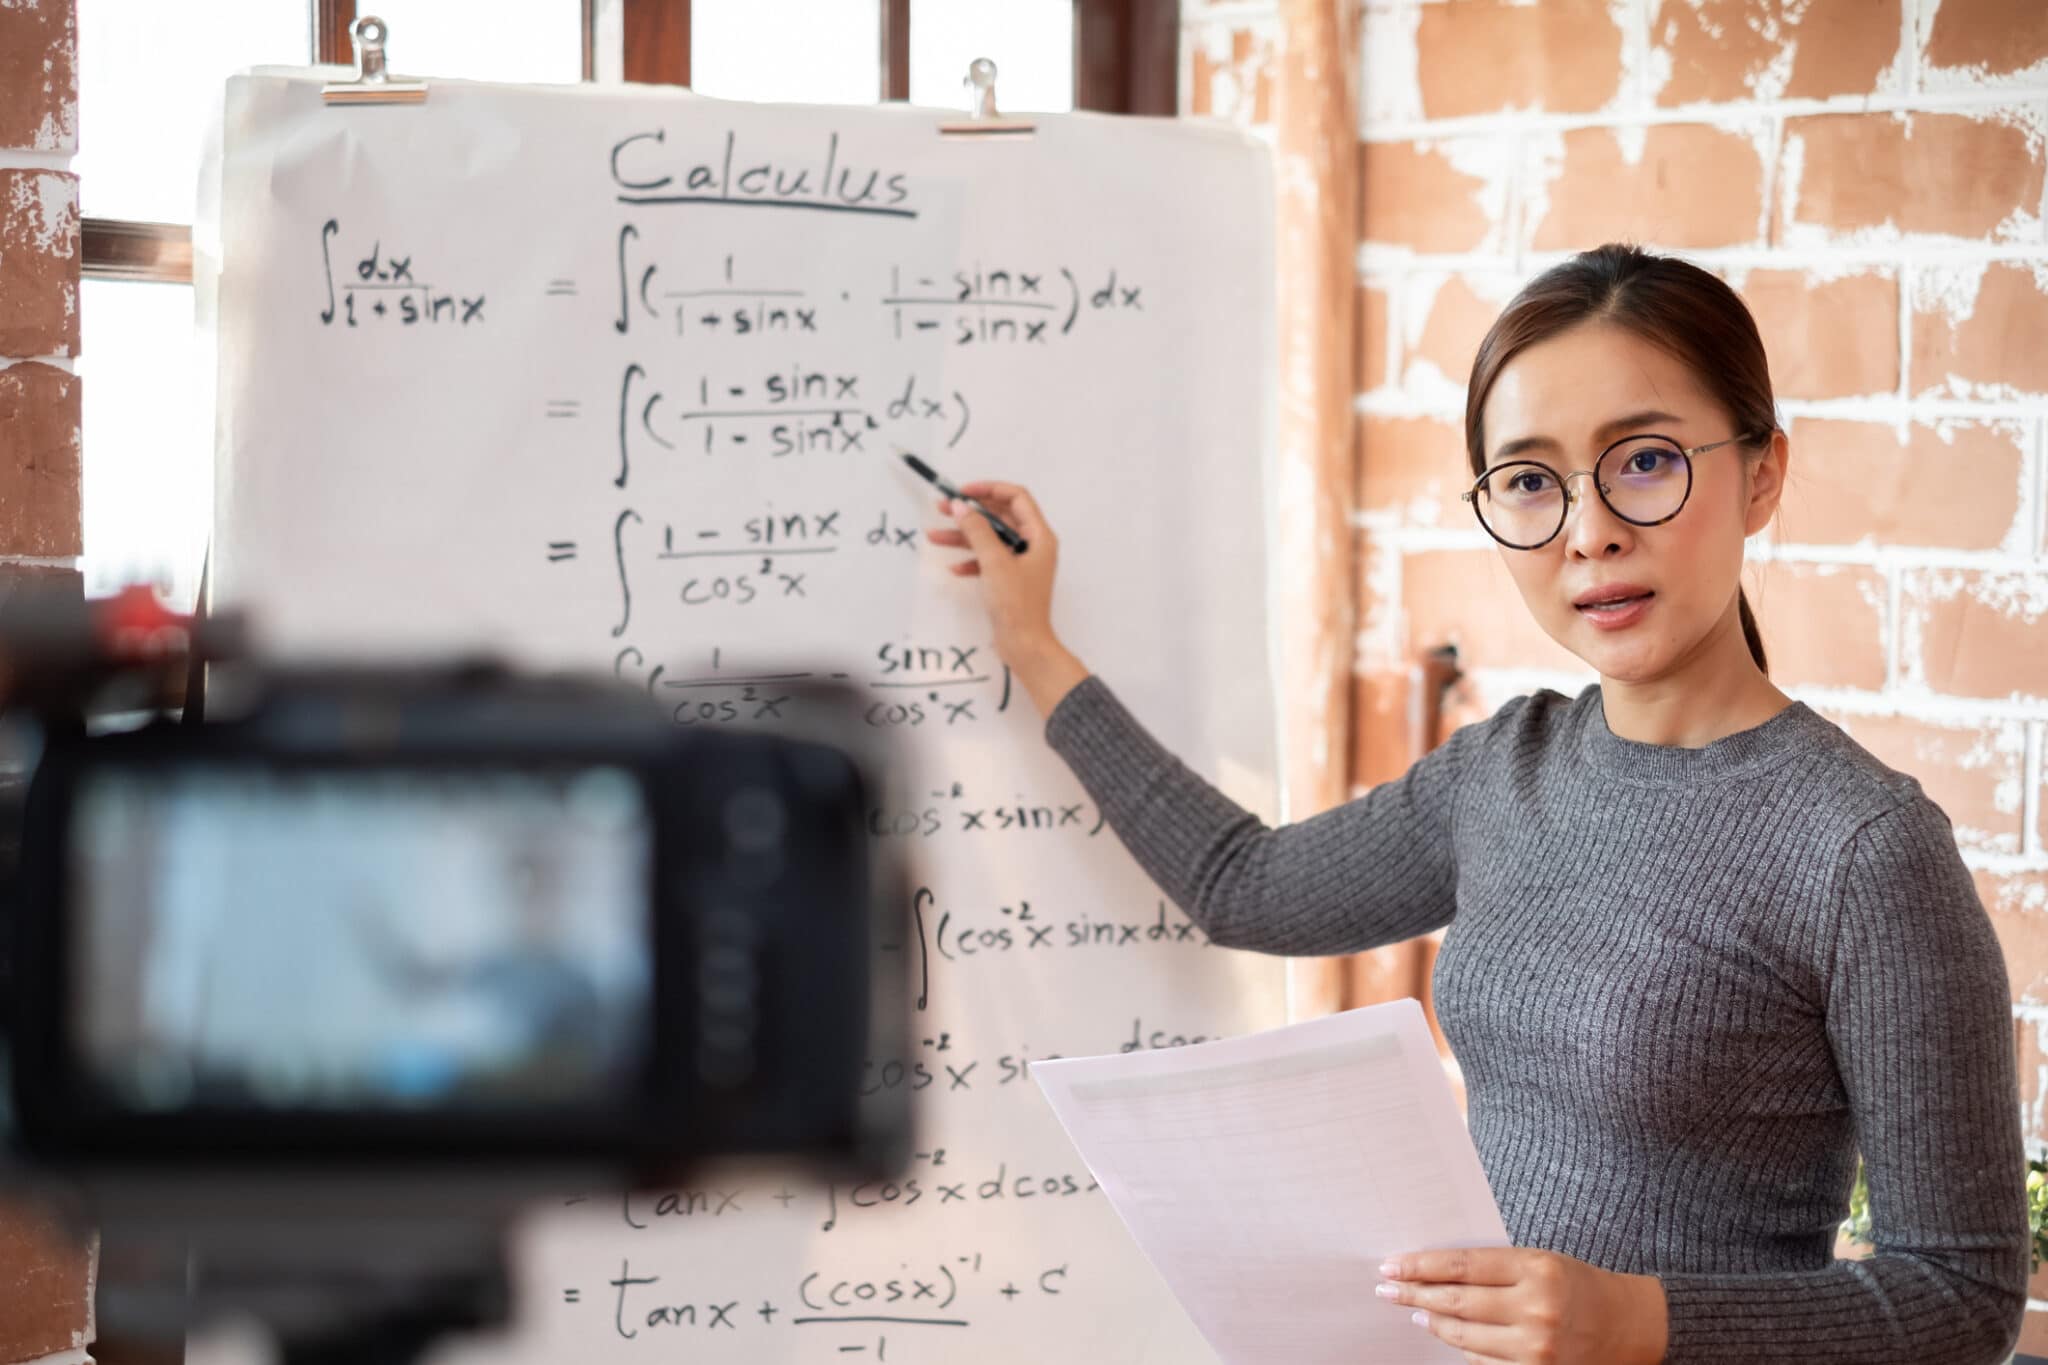 Calculus
∫ dx/(1 + sinx) = ∫( 1/(1 + sinx) · (1 - sinx)/(1 - sinx) ) dx
= ∫( (1 - sinx)/(1 - sin²x²) dx)
= ∫ (1 - sinx)/(cos²x) dx
∫( 1/(cos²x) - sinx/(cos²x) )
cos⁻²x sinx)
- ∫(cos⁻²x sinx dx)
cos⁻²x
= Tanx + ∫ cos⁻²x dcosx
= Tanx + (cosx)⁻¹/(-1) + C